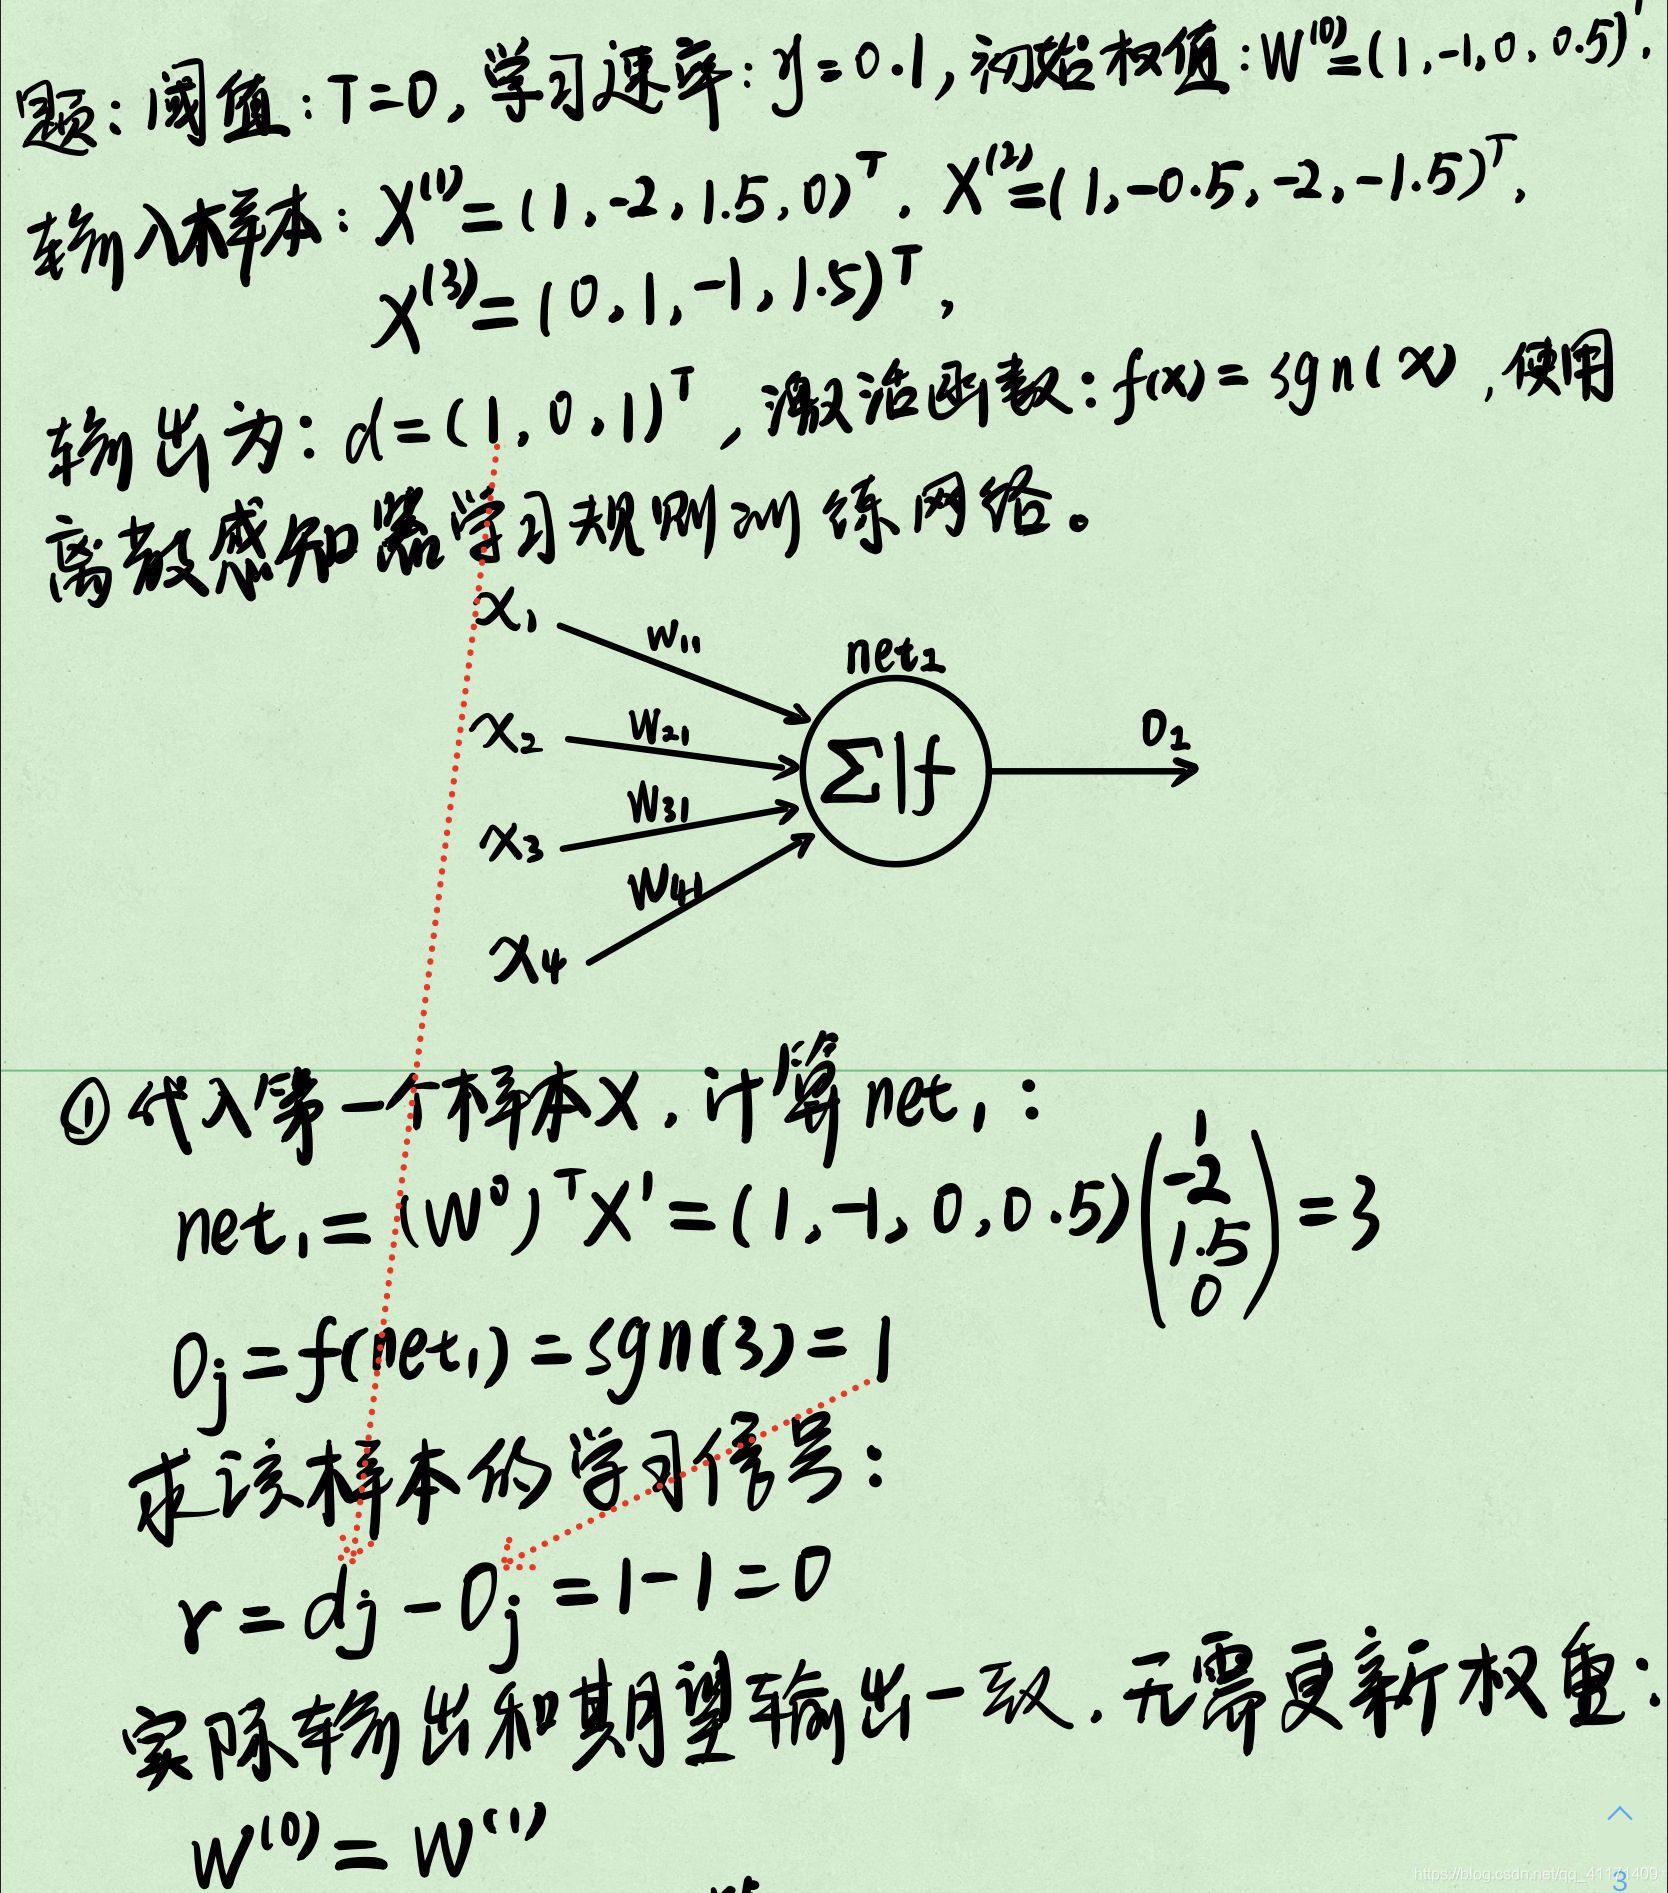 题：阈值：T=0，学习速率：η=0.1，初始权值：W⁽⁰⁾=(1,-1,0,0.5)ᵀ，
输入样本：X⁽¹⁾=(1,-2,1.5,0)ᵀ，X⁽²⁾=(1,-0.5,-2,-1.5)ᵀ，
X⁽³⁾=(0,1,-1,1.5)ᵀ，
输出为：d=(1,0,1)ᵀ，激活函数：f(x)=sgn(x)，使用
离散感知器学习规则训练网络。
x₁ w₁₁ net₁
x₂ w₂₁ Σ|f o₁
x₃ w₃₁
x₄ w₄₁
①代入第一个样本X，计算net₁：
net₁=(W⁰)ᵀX¹=(1,-1,0,0.5)(1 -2 1.5 0)=3
Oj=f(net₁)=sgn(3)=1
求该样本的学习信号：
r=dj-Oj=1-1=0
实际输出和期望输出一致，无需更新权重：
W⁽⁰⁾=W⁽¹⁾
https://blog.csdn.net/qq_41171409
3